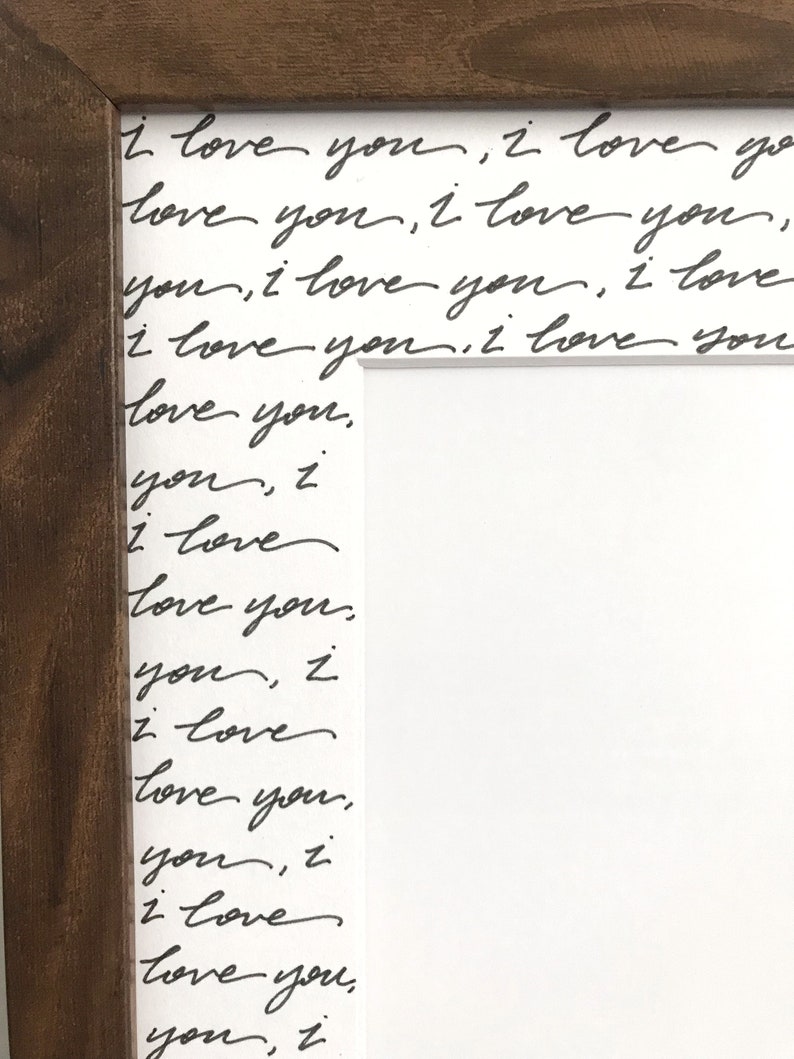 i love you, i love yo
love you, i love you,
you, i love you, i love
i love you, i love you
love you,
you, i
i love
love you,
you, i
i love
love you,
you, i
i love
love you,
you, i